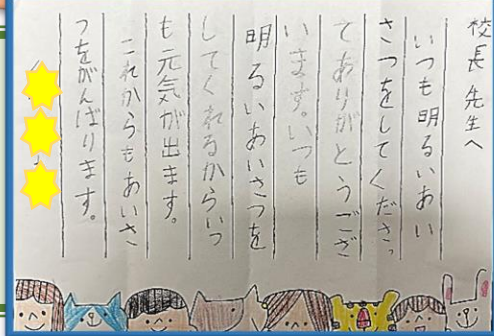 校長先生へ
いつも明るいあい
さつをしてくださっ
てありがとうござ
います。いつも
明るいあいさつを
してくれるからいつ
も元気が出ます。
これからもあいさ
つをがんばります。